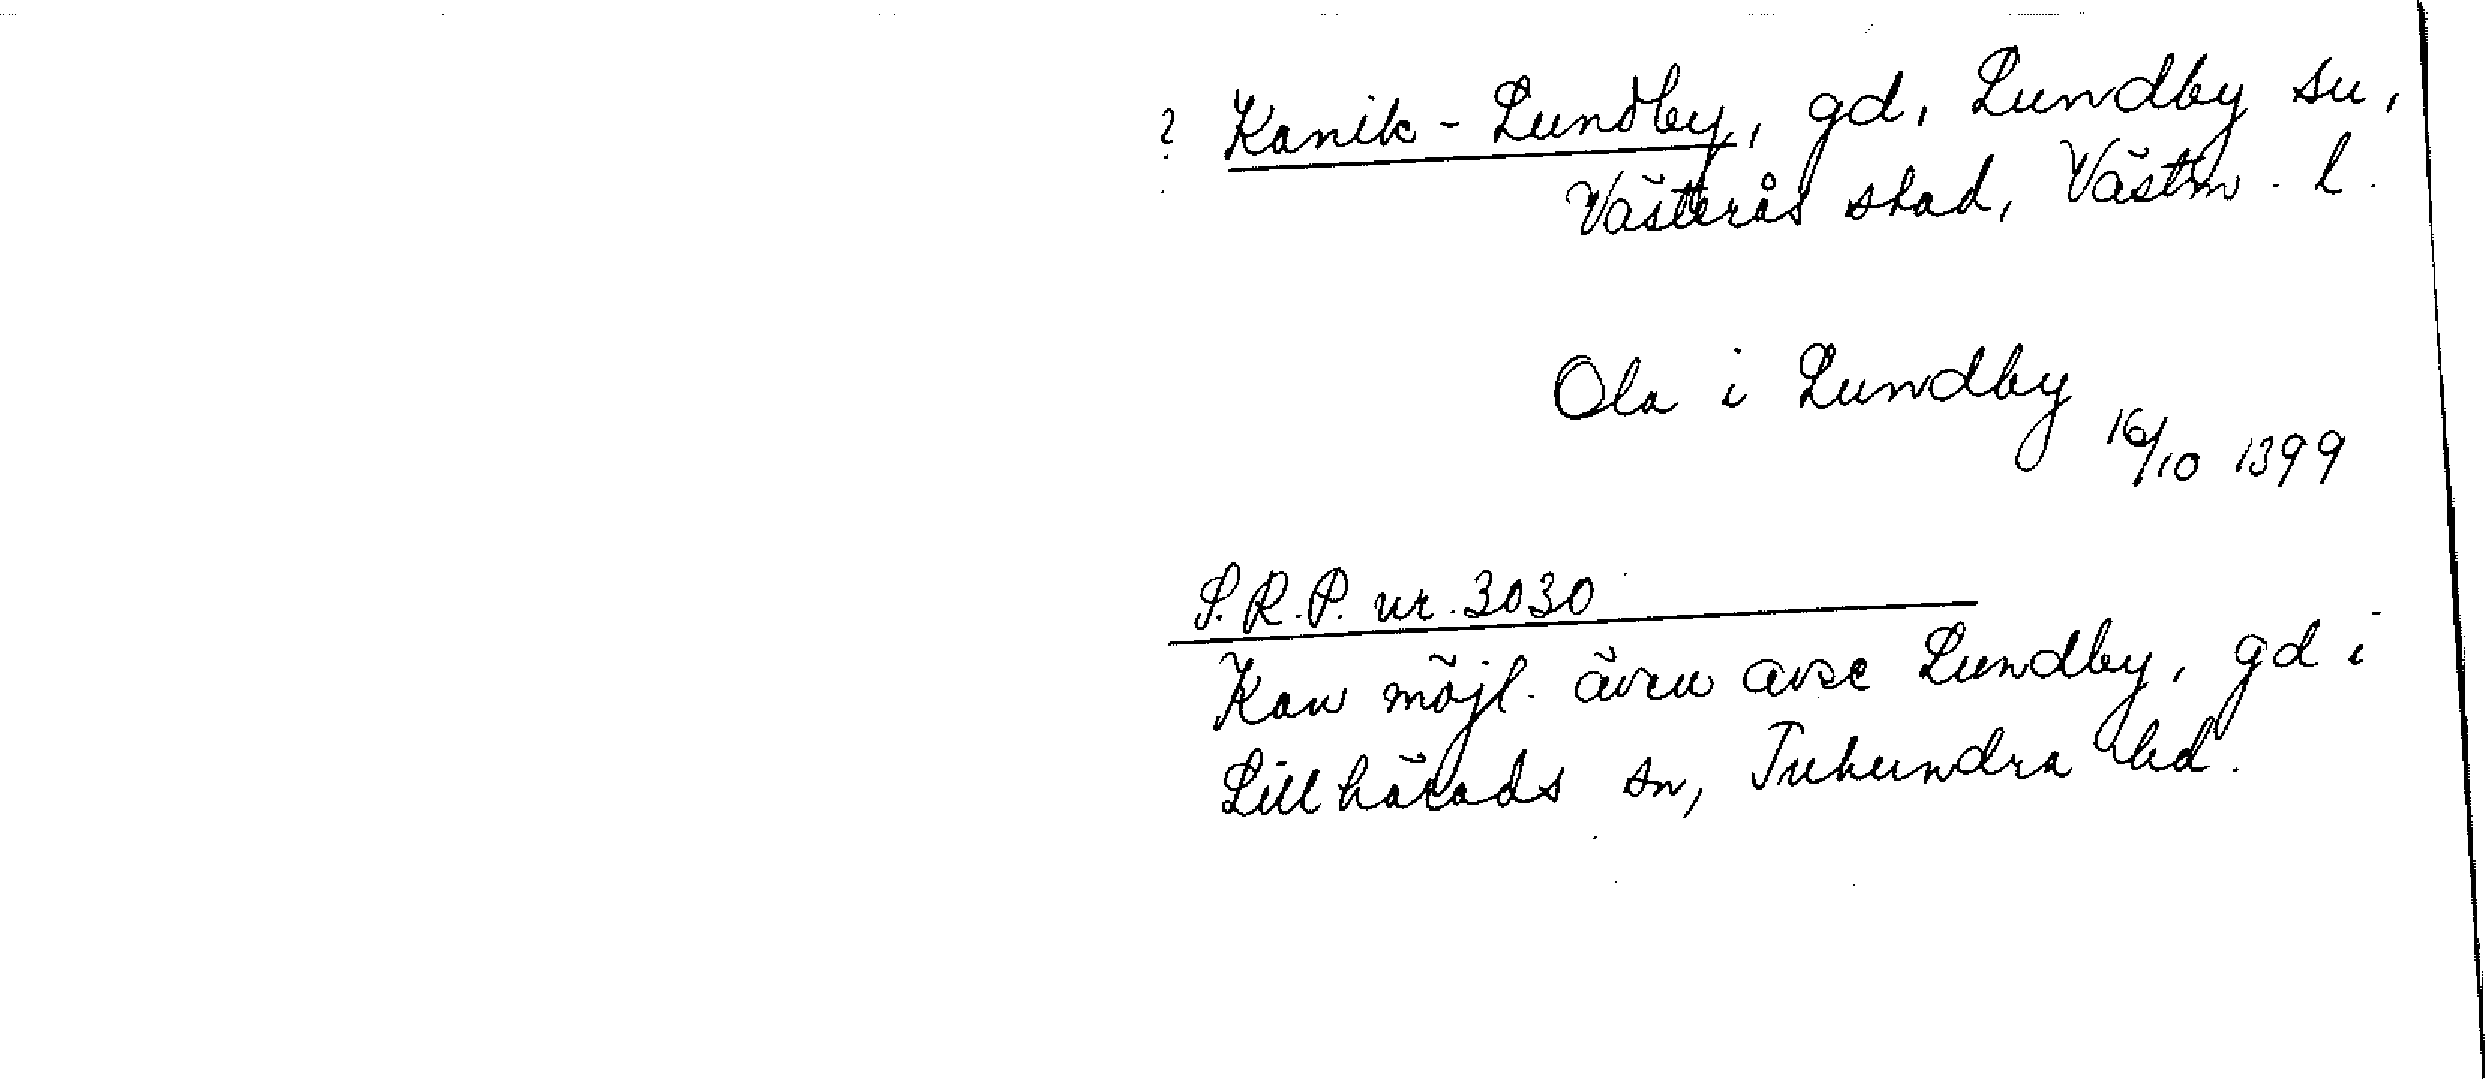 ? Kanik-Lundby, gd, Lundby sn,
Västerås stad, Västm. l.
Ola i Lundby
16/10 1399
S.R.P. nr. 3030
Kan möjl. även avse Lundby, gd i
Lillhärads sn, Tuhundra hd.